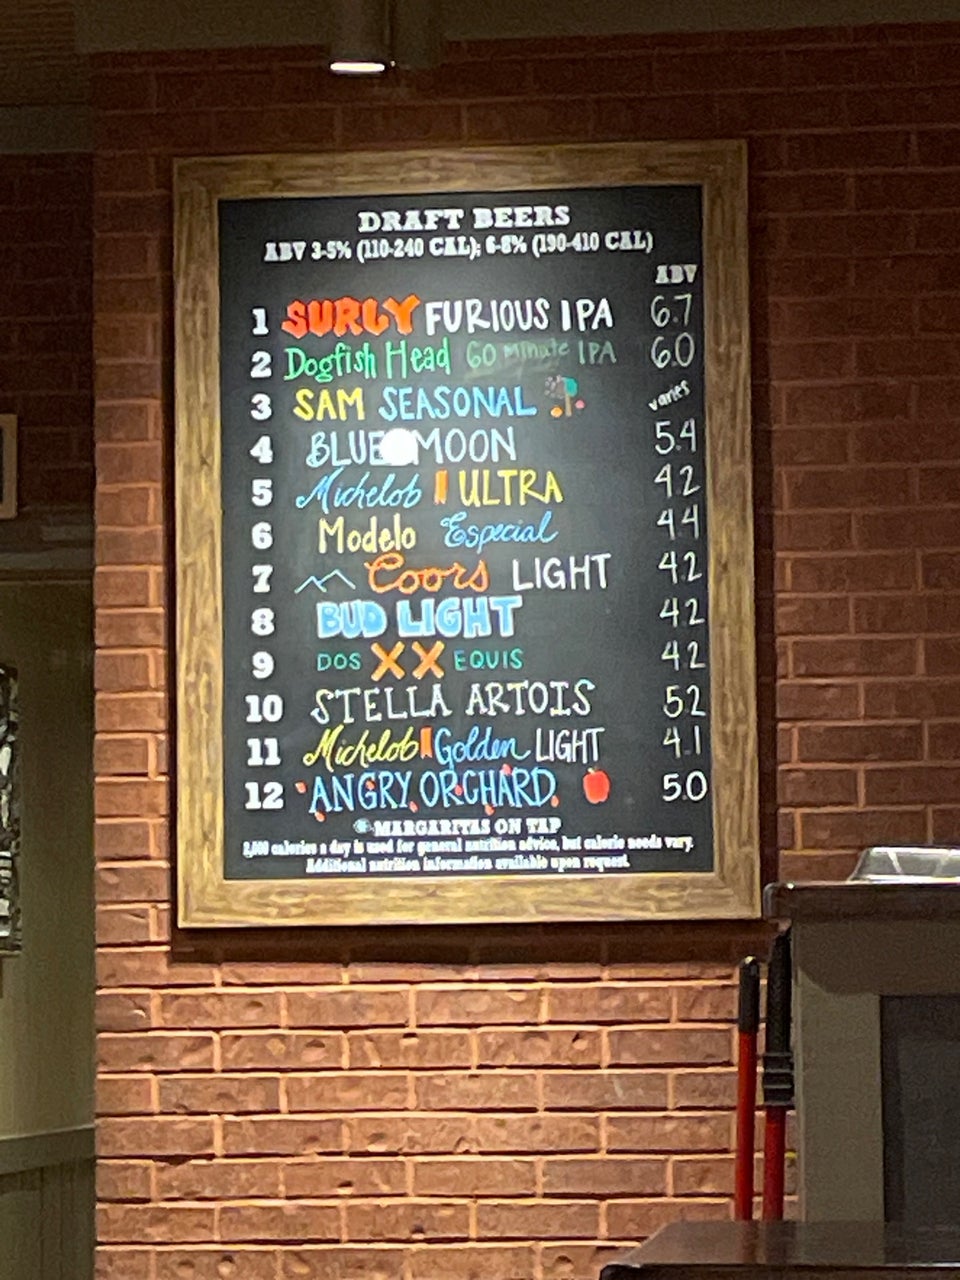 DRAFT BEERS
ABV 3-5% (110-240 CAL); 6-8% (190-410 CAL)
ABV
1 SURLY FURIOUS IPA 6.7
2 Dogfish Head 60 Minute IPA 6.0
3 SAM SEASONAL varies
4 BLUE MOON 5.4
5 Michelob ULTRA 4.2
6 Modelo Especial 4.4
7 Coors LIGHT 4.2
8 BUD LIGHT 4.2
9 DOS XX EQUIS 4.2
10 STELLA ARTOIS 5.2
11 Michelob Golden LIGHT 4.1
12 ANGRY ORCHARD 5.0
MARGARITAS ON TAP
2,000 calories a day is used for general nutrition advice, but calorie needs vary.
Additional nutrition information available upon request.